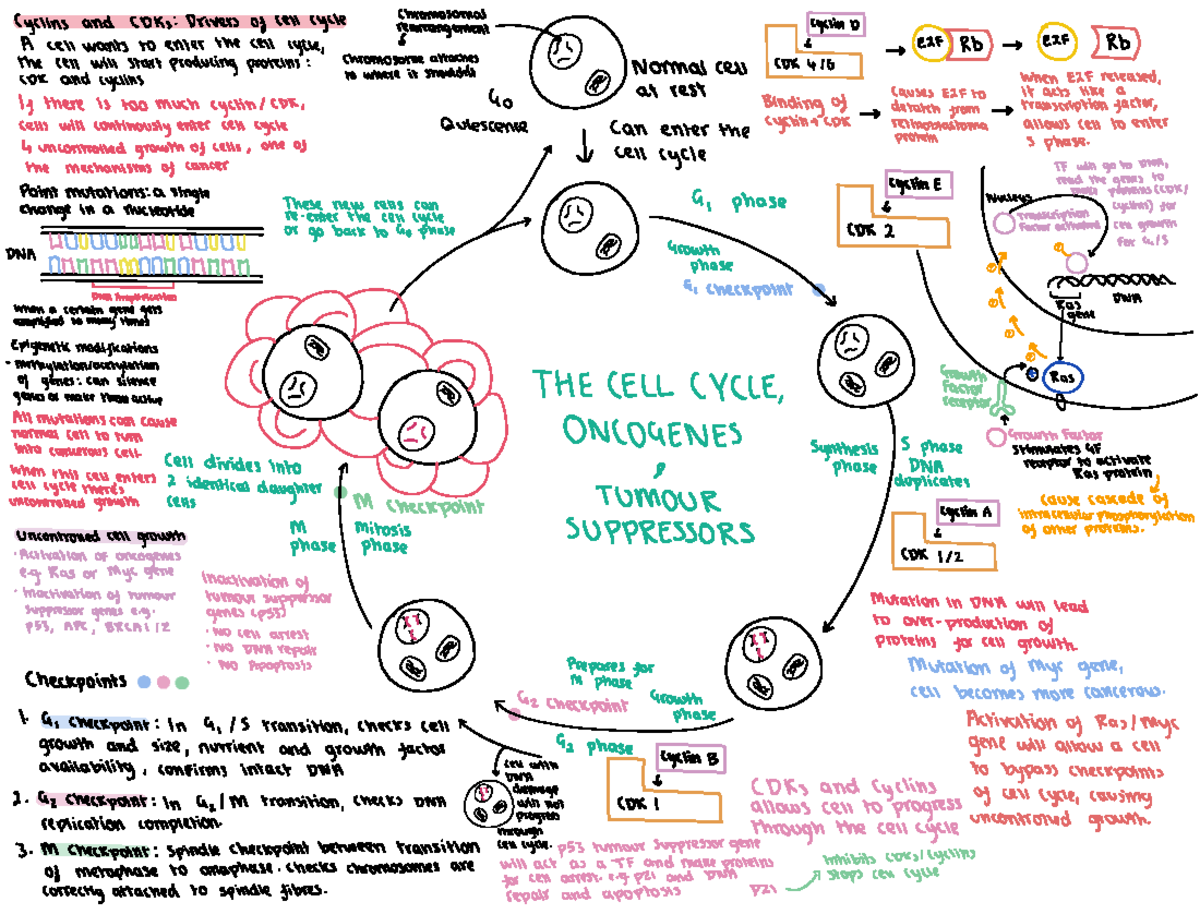 Cyclins and CDKs: Drivers of cell cycle
A cell wants to enter the cell cycle,
the cell will start producing proteins:
CDK and cyclins
If there is too much cyclin/CDK,
cells will continously enter cell cycle
↳ uncontrolled growth of cells, one of
the mechanisms of cancer
Point mutations: a single
change in a nucleotide
DNA
DNA Amplification
When a certain gene gets
amplified to many times
Epigenetic modifications
- methylation/acetylation
of genes: can silence
genes or make them active
All mutations can cause
normal cell to turn
into cancerous cell.
When this cell enters
cell cycle there's
uncontrolled growth
Chromosomal
rearrangement
Chromosome attaches
to where it shouldn't
Normal cell
at rest
G0
Quiescence
Can enter the
cell cycle
These new cells can
re-enter the cell cycle
or go back to G0 phase
G1 phase
Growth
phase
G1 checkpoint
THE CELL CYCLE,
ONCOGENES
&
TUMOUR
SUPPRESSORS
Synthesis
phase
S phase
DNA
duplicates
Cell divides into
2 identical daughter
cells
M checkpoint
M
phase
mitosis
phase
Prepares for
M phase
G2 checkpoint
Growth
phase
G2 phase
Cyclin D
CDK 4/6
E2F Rb
E2F Rb
Binding of
cyclin + CDK
Causes E2F to
detatch from
retinoblastoma
protein
When E2F released,
it acts like a
transcription factor,
allows cell to enter
S phase.
Cyclin E
CDK 2
Nucleus
TF will go to DNA,
read the genes to
make proteins (CDK/
cyclins) for
cell growth
for G1/S
Transcription
factor activated
DNA
Ras
gene
Ras
Growth
Factor
receptor
Growth Factor
Stimulates GF
receptor to activate
Ras protein
cause cascade of
intracellular phosphorylation
of other proteins.
Cyclin A
CDK 1/2
Mutation in DNA will lead
to over-production of
proteins for cell growth.
Mutation of Myc gene,
cell becomes more cancerous.
Activation of Ras/Myc
gene will allow a cell
to bypass checkpoints
of cell cycle, causing
uncontrolled growth.
Uncontrolled cell growth
· Activation of oncogenes
e.g Ras or Myc gene
· Inactivation of tumour
suppressor genes e.g.
p53, APC, BRCA1/2
Inactivation of
tumour suppressor
genes (p53)
· No cell arrest
· No DNA repair
· No Apoptosis
Checkpoints
1. G1 checkpoint: In G1/S transition, checks cell
growth and size, nutrient and growth factor
availability, confirms intact DNA
2. G2 checkpoint: In G2/M transition, checks DNA
replication completion.
3. M checkpoint: Spindle checkpoint between transition
of metaphase to anaphase. Checks chromosomes are
correctly attached to spindle fibres.
Cell with
DNA
damage
will not
progress
through
cell cycle.
Cyclin B
CDK 1
CDKs and Cyclins
allows cell to progress
through the cell cycle
p53 tumour suppressor gene
will act as a TF and make proteins
for cell arrest. e.g p21 and DNA
repair and apoptosis
p21
Inhibits CDKs/cyclins
Stops cell cycle